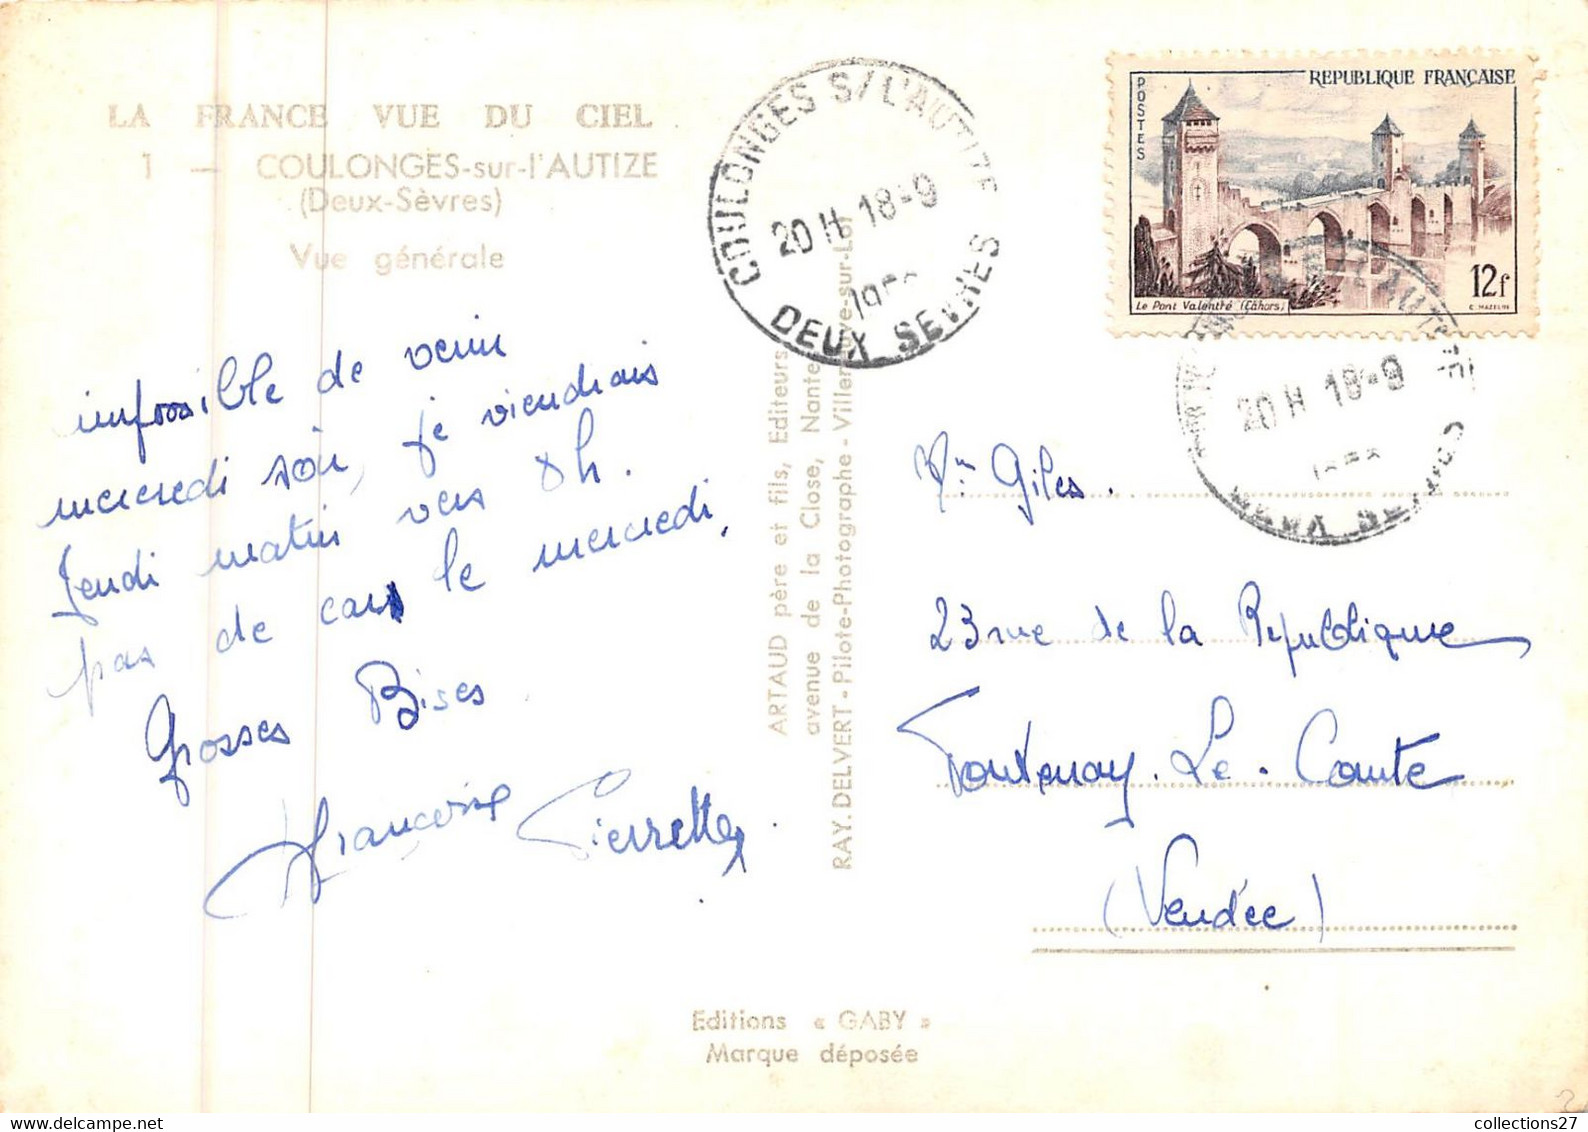 LA FRANCE VUE DU CIEL
1 — COULONGES-sur-l'AUTIZE
(Deux-Sèvres)
Vue générale
impossible de venir
mercredi soir, je viendrais
Jeudi matin vers 8h.
pas de car le mercredi.
Grosses Bises
Françoise Pierrette
ARTAUD père et fils, Editeurs
avenue de la Close, Nantes
RAY. DELVERT - Pilote-Photographe - Villeneuve-sur-Lot
COULONGES S/L'AUTIZE
20 H 18-9
DEUX SEVRES
POSTES
REPUBLIQUE FRANÇAISE
12f
Le Pont Valentré (Cahors)
C. MAZELIN
20 H 18-9
DEUX SEVRES
Giles.
23 rue de la République
Fontenay-Le-Comte
(Vendée)
Editions « GABY »
Marque déposée
collections27